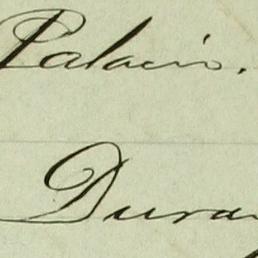 Palacio.
Duran